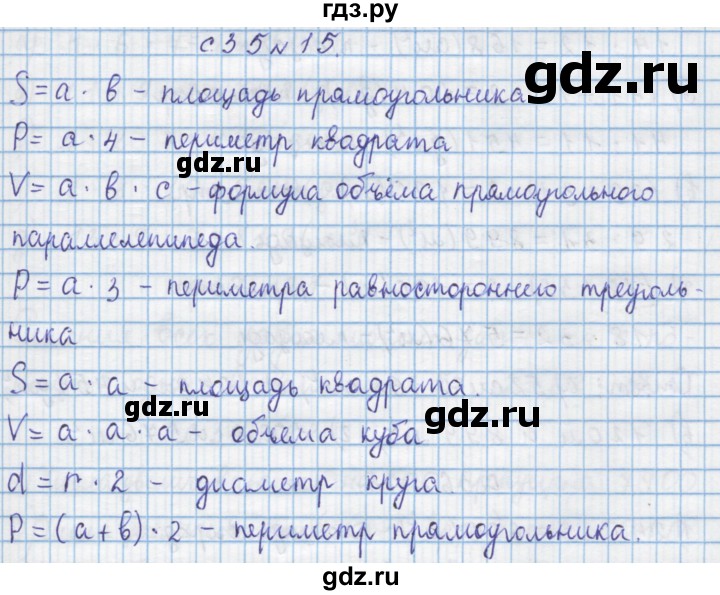 гдз.ру
с 35 № 15.
S = а · в – площадь прямоугольника
gdz.ru
P = а · 4 – периметр квадрата
gdz.ru
V = а · в · с – формула объёма прямоугольного
параллелепипеда.
gdz.ru
P = а · 3 – периметра равностороннего треуголь-
ника
S = а · а – площадь квадрата.
gdz.ru
gdz.ru
V = а · а · а – объема куба
d = r · 2 – диаметр круга.
P = (а + в) · 2 – периметр прямоугольника.
gdz.ru
gdz.ru